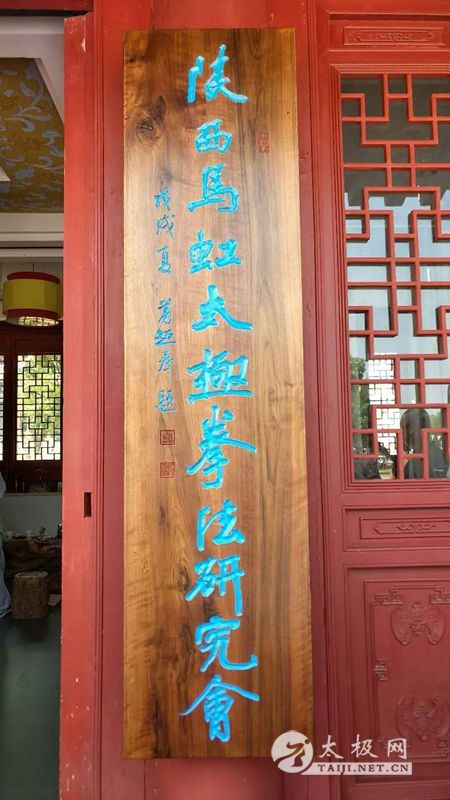 陕西馬虹太極拳法研究會
戊戌夏 題
太极网
TAIJI.NET.CN